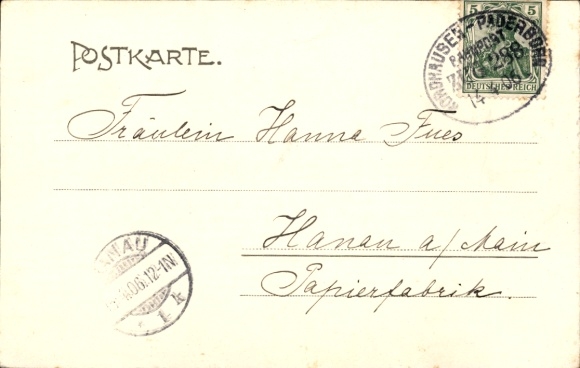 POSTKARTE.
5 5
DEUTSCHES REICH
NORDHAUSEN - PADERBORN
BAHNPOST
ZUG 288
14
Fräulein Hanna Fues
Hanau a/Main
Papierfabrik.
HANAU
06.12-1N.